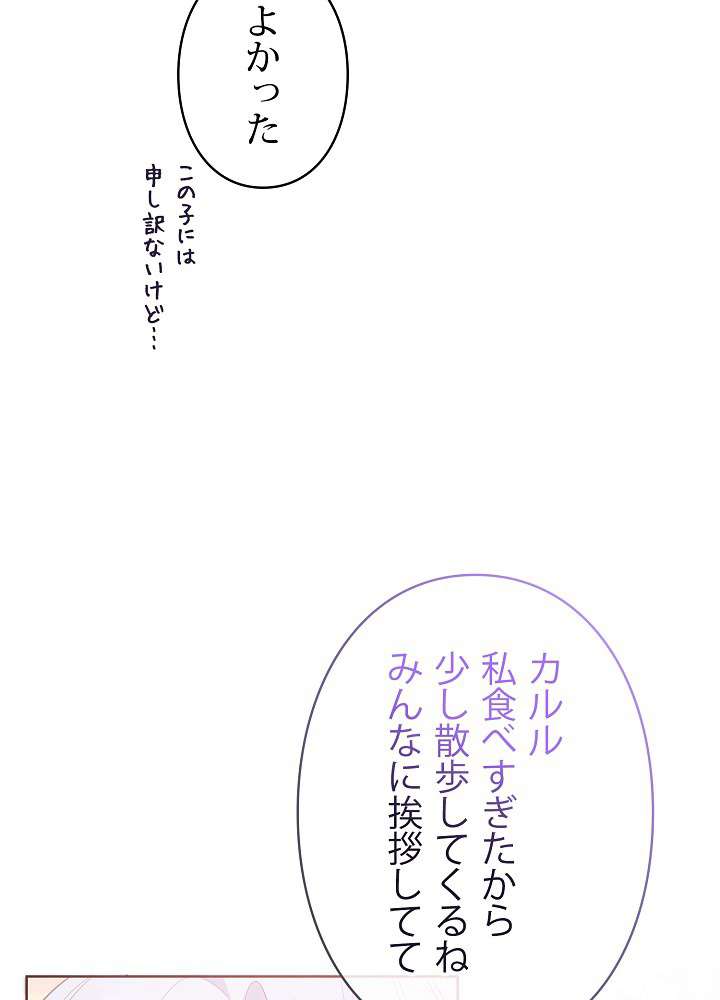 よかった
この子には
申し訳ないけど…
カルル
私食べすぎたから
少し散歩してくるね
みんなに挨拶してて